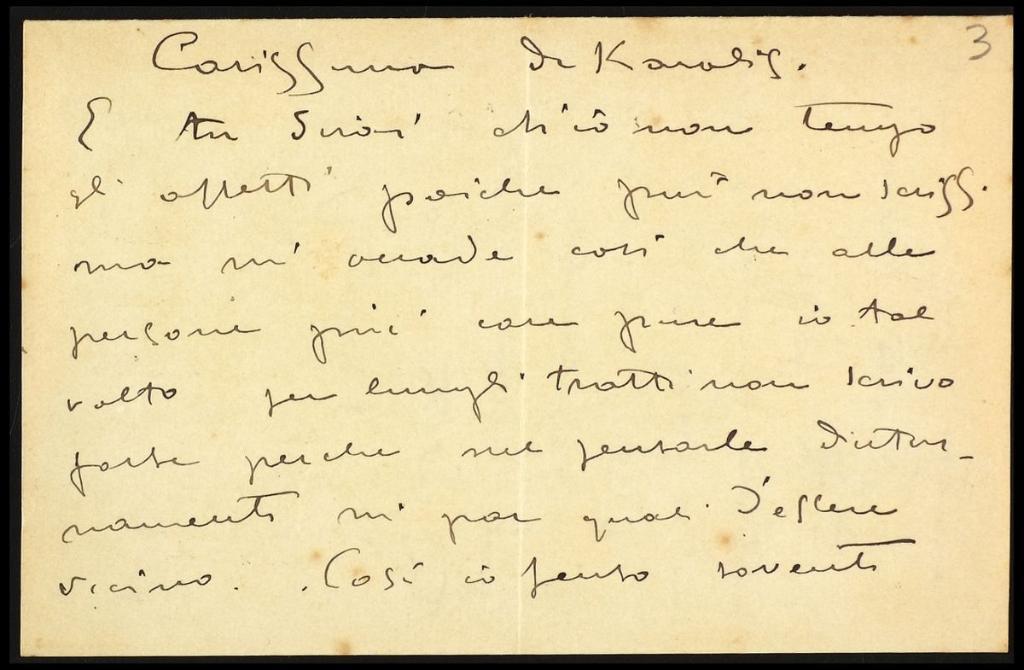 3
Carissimo De Karolis.
E tu dirai ch'io non tengo
gli affetti poiché più non scrissi.
ma m'accade così che alle
persone più care pure io tal
volta per lunghi tratti non scrivo
forse perché nel pensarle diutur-
namente mi par quasi d'essere
vicino. Così io penso sovente